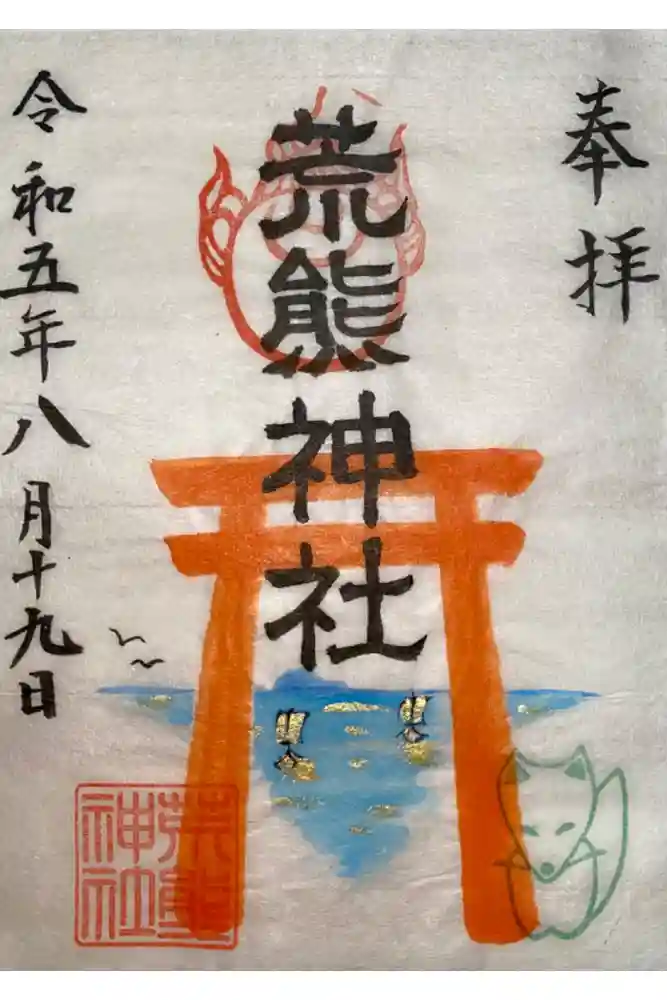 奉拝
荒熊神社
令和五年八月十九日
荒熊神社